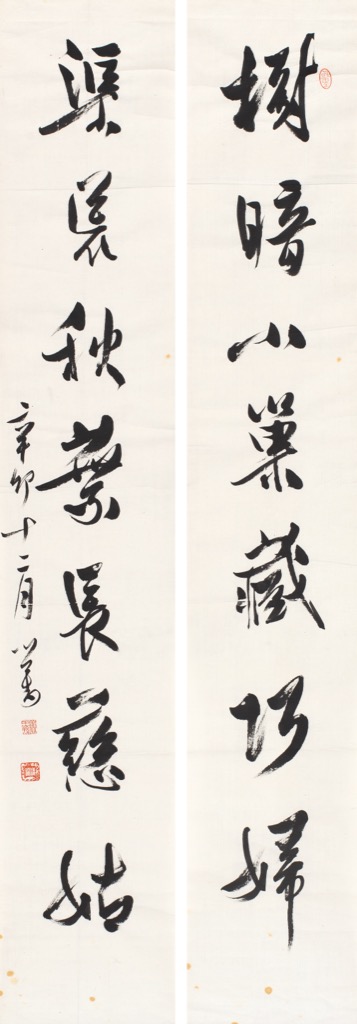 樹暗小巢藏巧婦
渠荒秋葉長慈姑
辛卯十二月 心畬